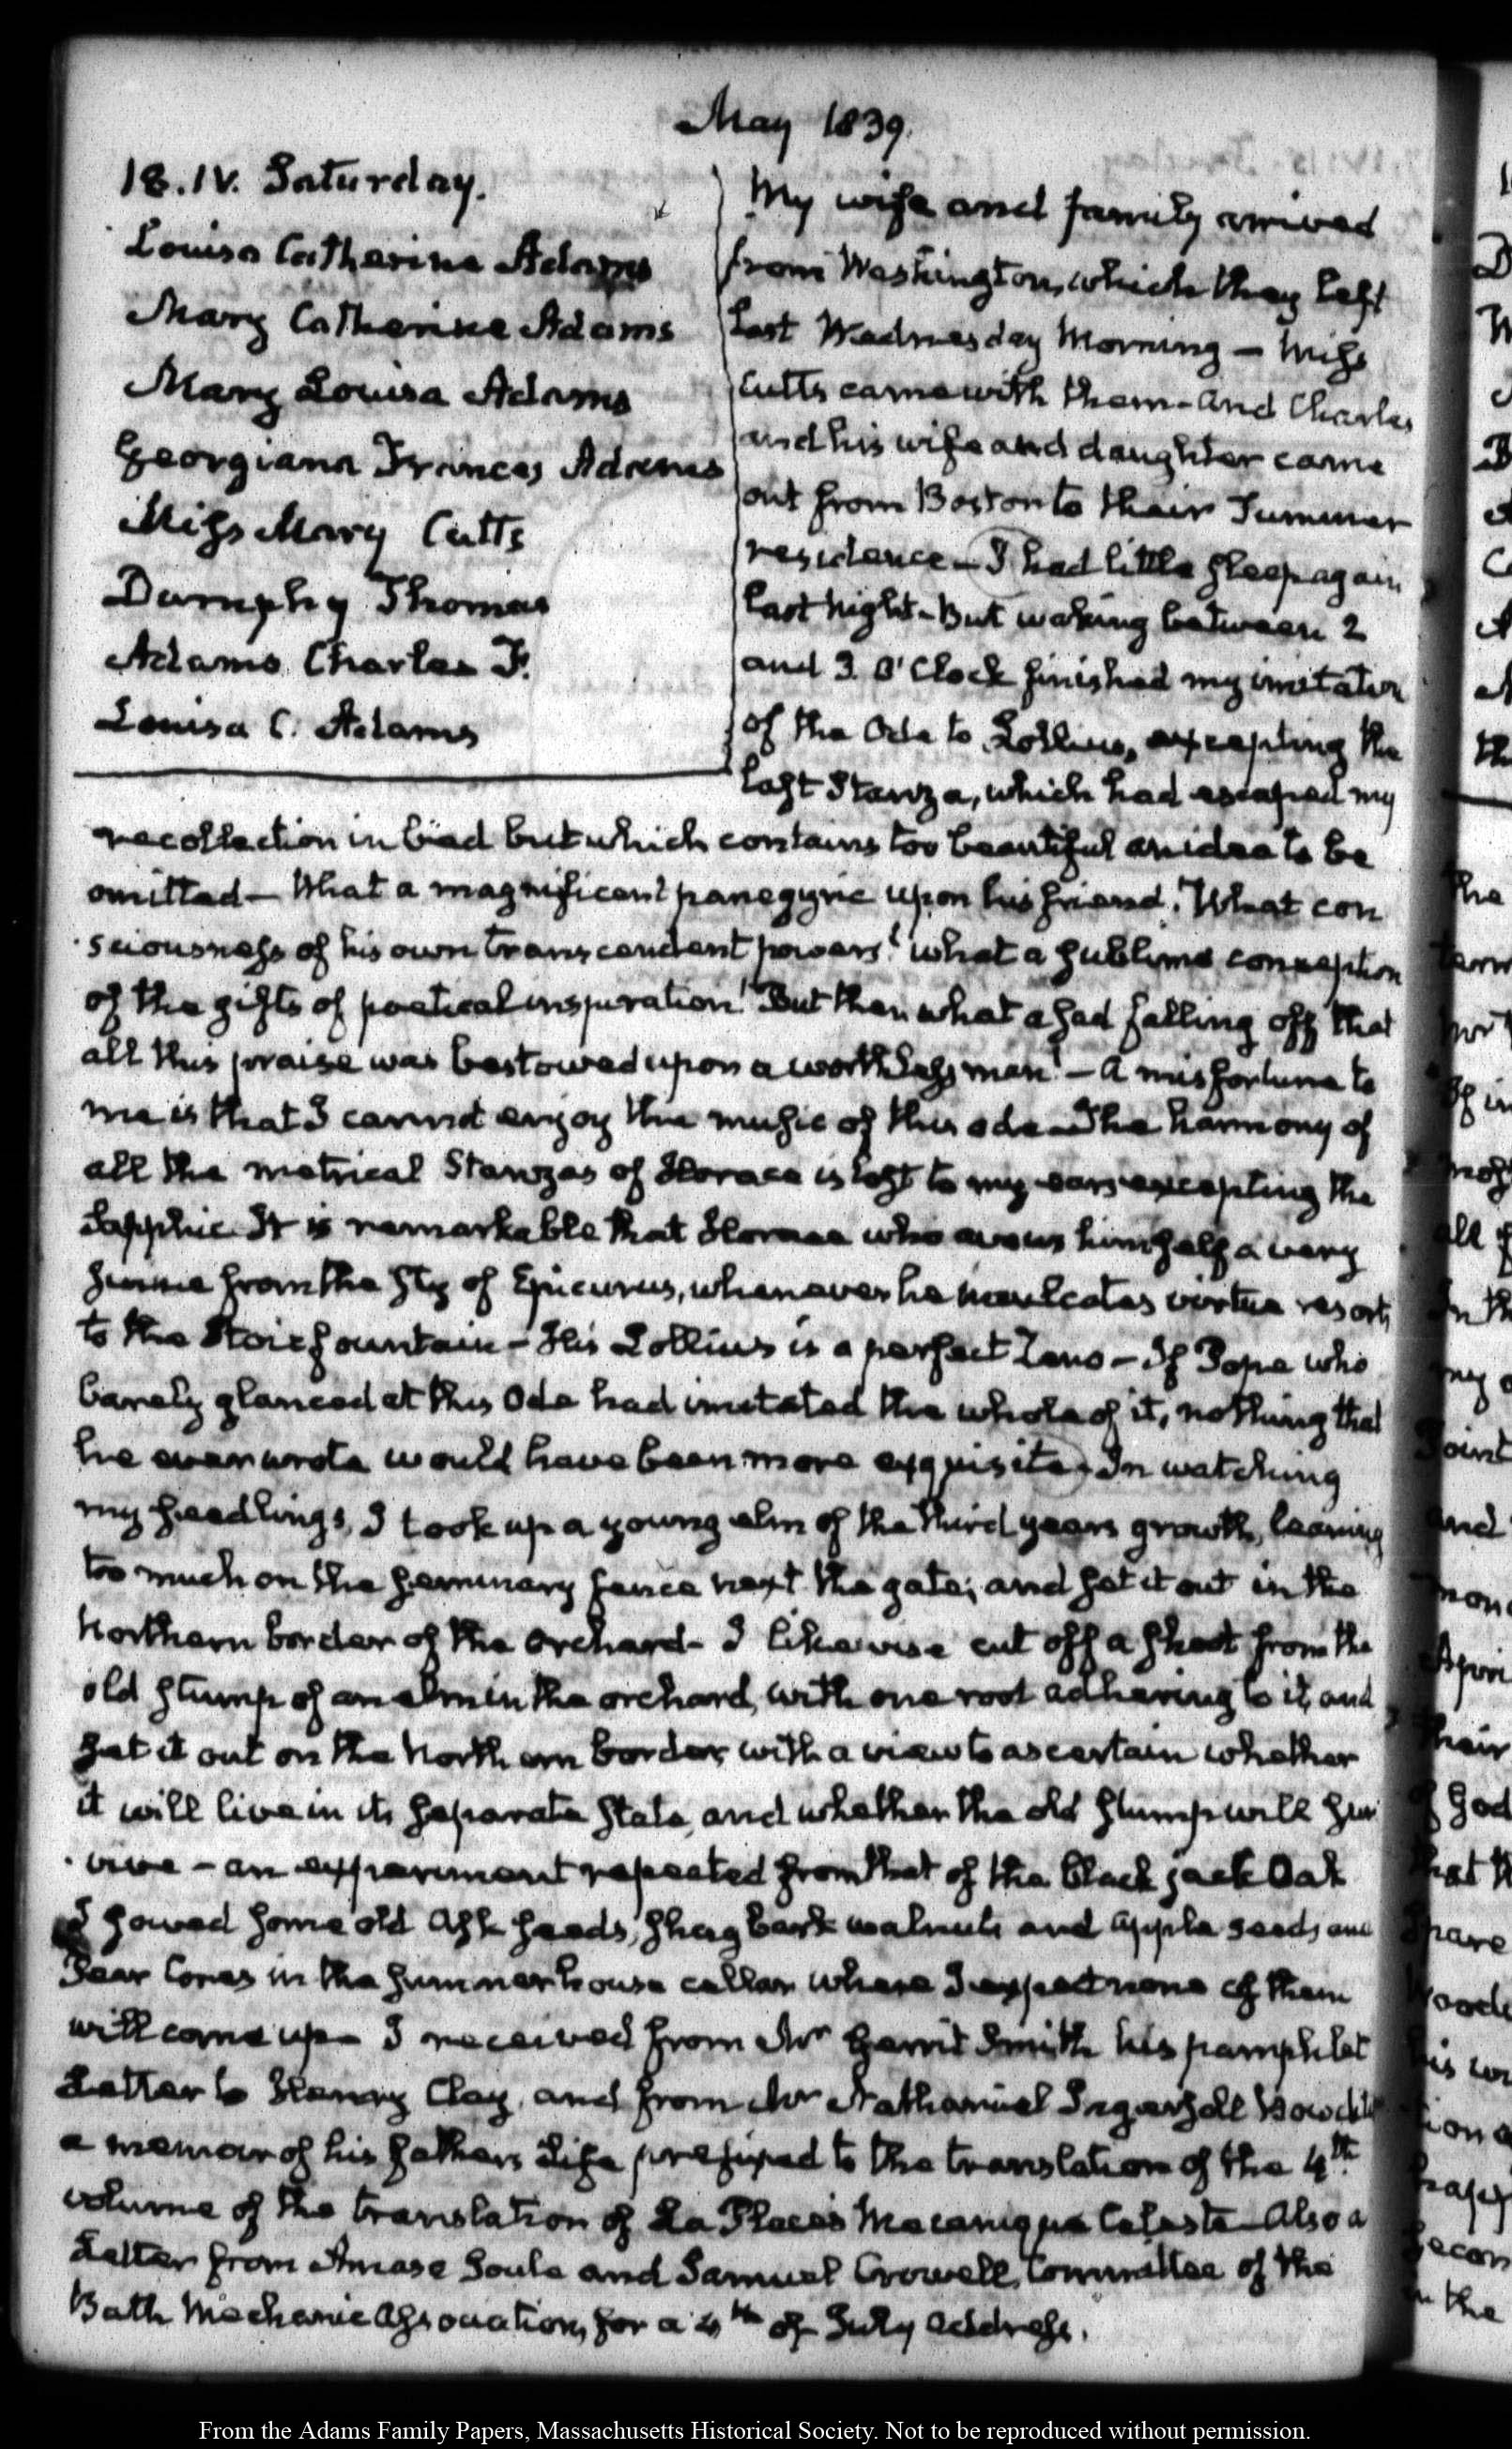 May 1839.
18. IV. Saturday.
Louisa Catherine Adams
Mary Catherine Adams
Mary Louisa Adams
Georgiana Frances Adams
Miss Mary Cutts
Dumphy Thomas
Adams Charles F.
Louisa C. Adams
My wife and family arrived
from Washington, which they left
last Wednesday Morning — Miss
Cutts came with them - and Charles
and his wife and daughter came
out from Boston to their Summer
residence — I had little sleep again
last night - But waking between 2
and 3. O'Clock finished my imitation
of the Ode to Lollius, excepting the
last Stanza, which had escaped my
recollection in bed but which contains too beautiful an idea to be
omitted — What a magnificent panegyric upon his friend! What con
sciousness of his own transcendent powers! what a sublime conception
of the gifts of poetical inspiration! But then what a sad falling off that
all this praise was bestowed upon a worthless man! — A misfortune to
me is that I cannot enjoy the music of this ode — The harmony of
all the metrical Stanzas of Horace is lost to my ears excepting the
Sapphic. It is remarkable that Horace who avows himself a very
swine from the sty of Epicurus, whenever he inculcates virtue resorts
to the Stoic fountain - His Lollius is a perfect Zeno - If Pope who
barely glanced at this Ode had imitated the whole of it, nothing that
he ever wrote would have been more exquisite. In watching
my seedlings, I took up a young elm of the third years growth, leaning
too much on the seminary fence next the gate; and set it out in the
Northern border of the orchard - I likewise cut off a shoot from the
old stump of an elm in the orchard, with one root adhering to it, and
set it out on the Northern border, with a view to ascertain whether
it will live in its separate state, and whether the old stump will sur
vive - an experiment repeated from that of the black jack Oak
I sowed some old Ash seeds, shagbark walnuts and apple seeds and
Pear Cores in the summer house cellar where I expect none of them
will come up - I received from Mr Gerrit Smith his pamphlet
Letter to Henry Clay, and from Mr Nathaniel Ingersoll Bowditch
a memoir of his fathers Life prefixed to the translation of the 4th
volume of the translation of La Place's Mecanique Celeste — Also a
Letter from Amase Soule and Samuel Crowell, Committee of the
Bath Mechanic Association, for a 4th of July address.
From the Adams Family Papers, Massachusetts Historical Society. Not to be reproduced without permission.